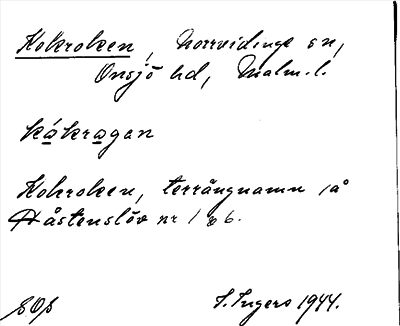 Kokroken, Norrvidinge sn,
Onsjö hd, Malm. l.
kåkrogan
Kokroken, terrängnamn på
Dåstenslöv nr 1 o 6.
S. Ingers 1944.